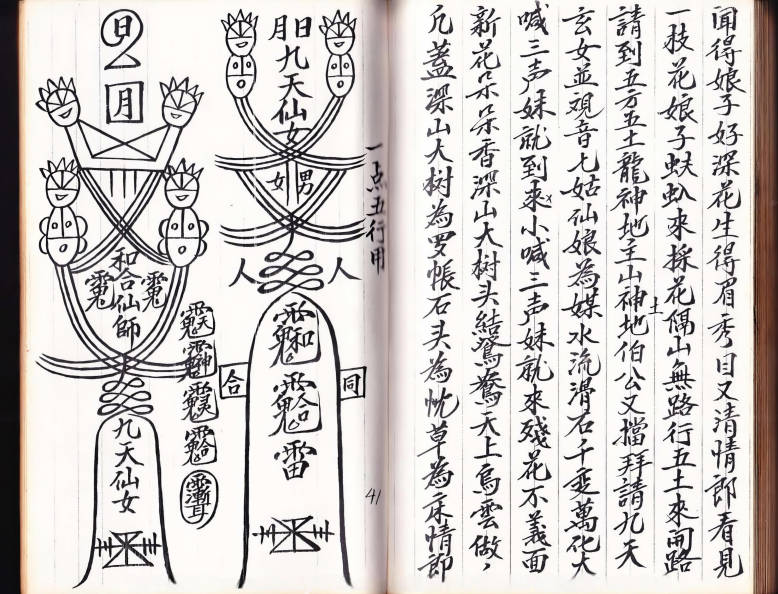 聞得娘子好深花生得眉秀目又清情郎看見
一枝花娘子蚨虬來採花隔山無路行五土來開路
請到五方五土龍神地主山神土地伯公文擋拜請九天
玄女並观音七姑仙娘為媒水流滑石千变萬化大
喊三声妹就到來小喊三声妹就來殘花不義面
新花朵朵香深山大树头結鴛鴦天上烏雲做,
凡蓋深山大树為罗帳石头為忱草為床情郎
一点五行用
41
日月
九天仙女
男
女
人
人
和
合
雷
同
合
日
月
和合仙師
九天仙女